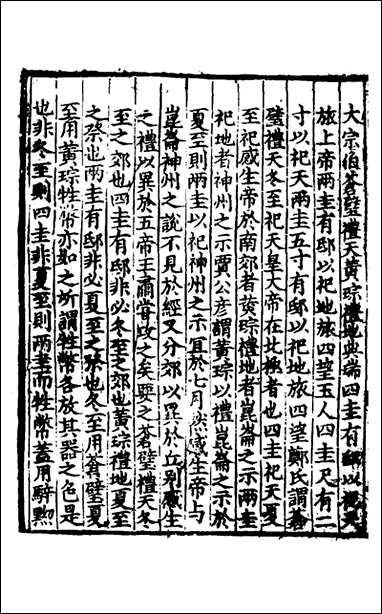 大宗伯蒼璧禮天黃琮禮地典端四圭有邸以祀天
旅上帝兩圭有邸以祀地旅四望玉人四圭尺有二
寸以祀天兩圭五寸有邸以祀地旅四望鄭氏謂蒼
璧禮天冬至祀天皇大帝在北極者也四圭祀天夏
至祀感生帝於南郊者黃琮禮地者崑崙之示兩圭
祀地者神州之示賈公彥謂黃琮以禮崑崙之示於
夏至則兩圭以祀神州之示宜於七月然感生帝與
崑崙神州之說不見於經又分郊以異於丘別感生
之禮以異於五帝王肅嘗攻之矣要之蒼璧禮天冬
至之郊也四圭有邸非必冬至之郊也黃琮禮地夏至
之祭也兩圭有邸非必夏至之祭也冬至用蒼璧夏
至用黃琮牲幣亦如之所謂牲幣各放其器之色是
也非冬至則四圭非夏至則兩圭而牲幣蓋用騂黝